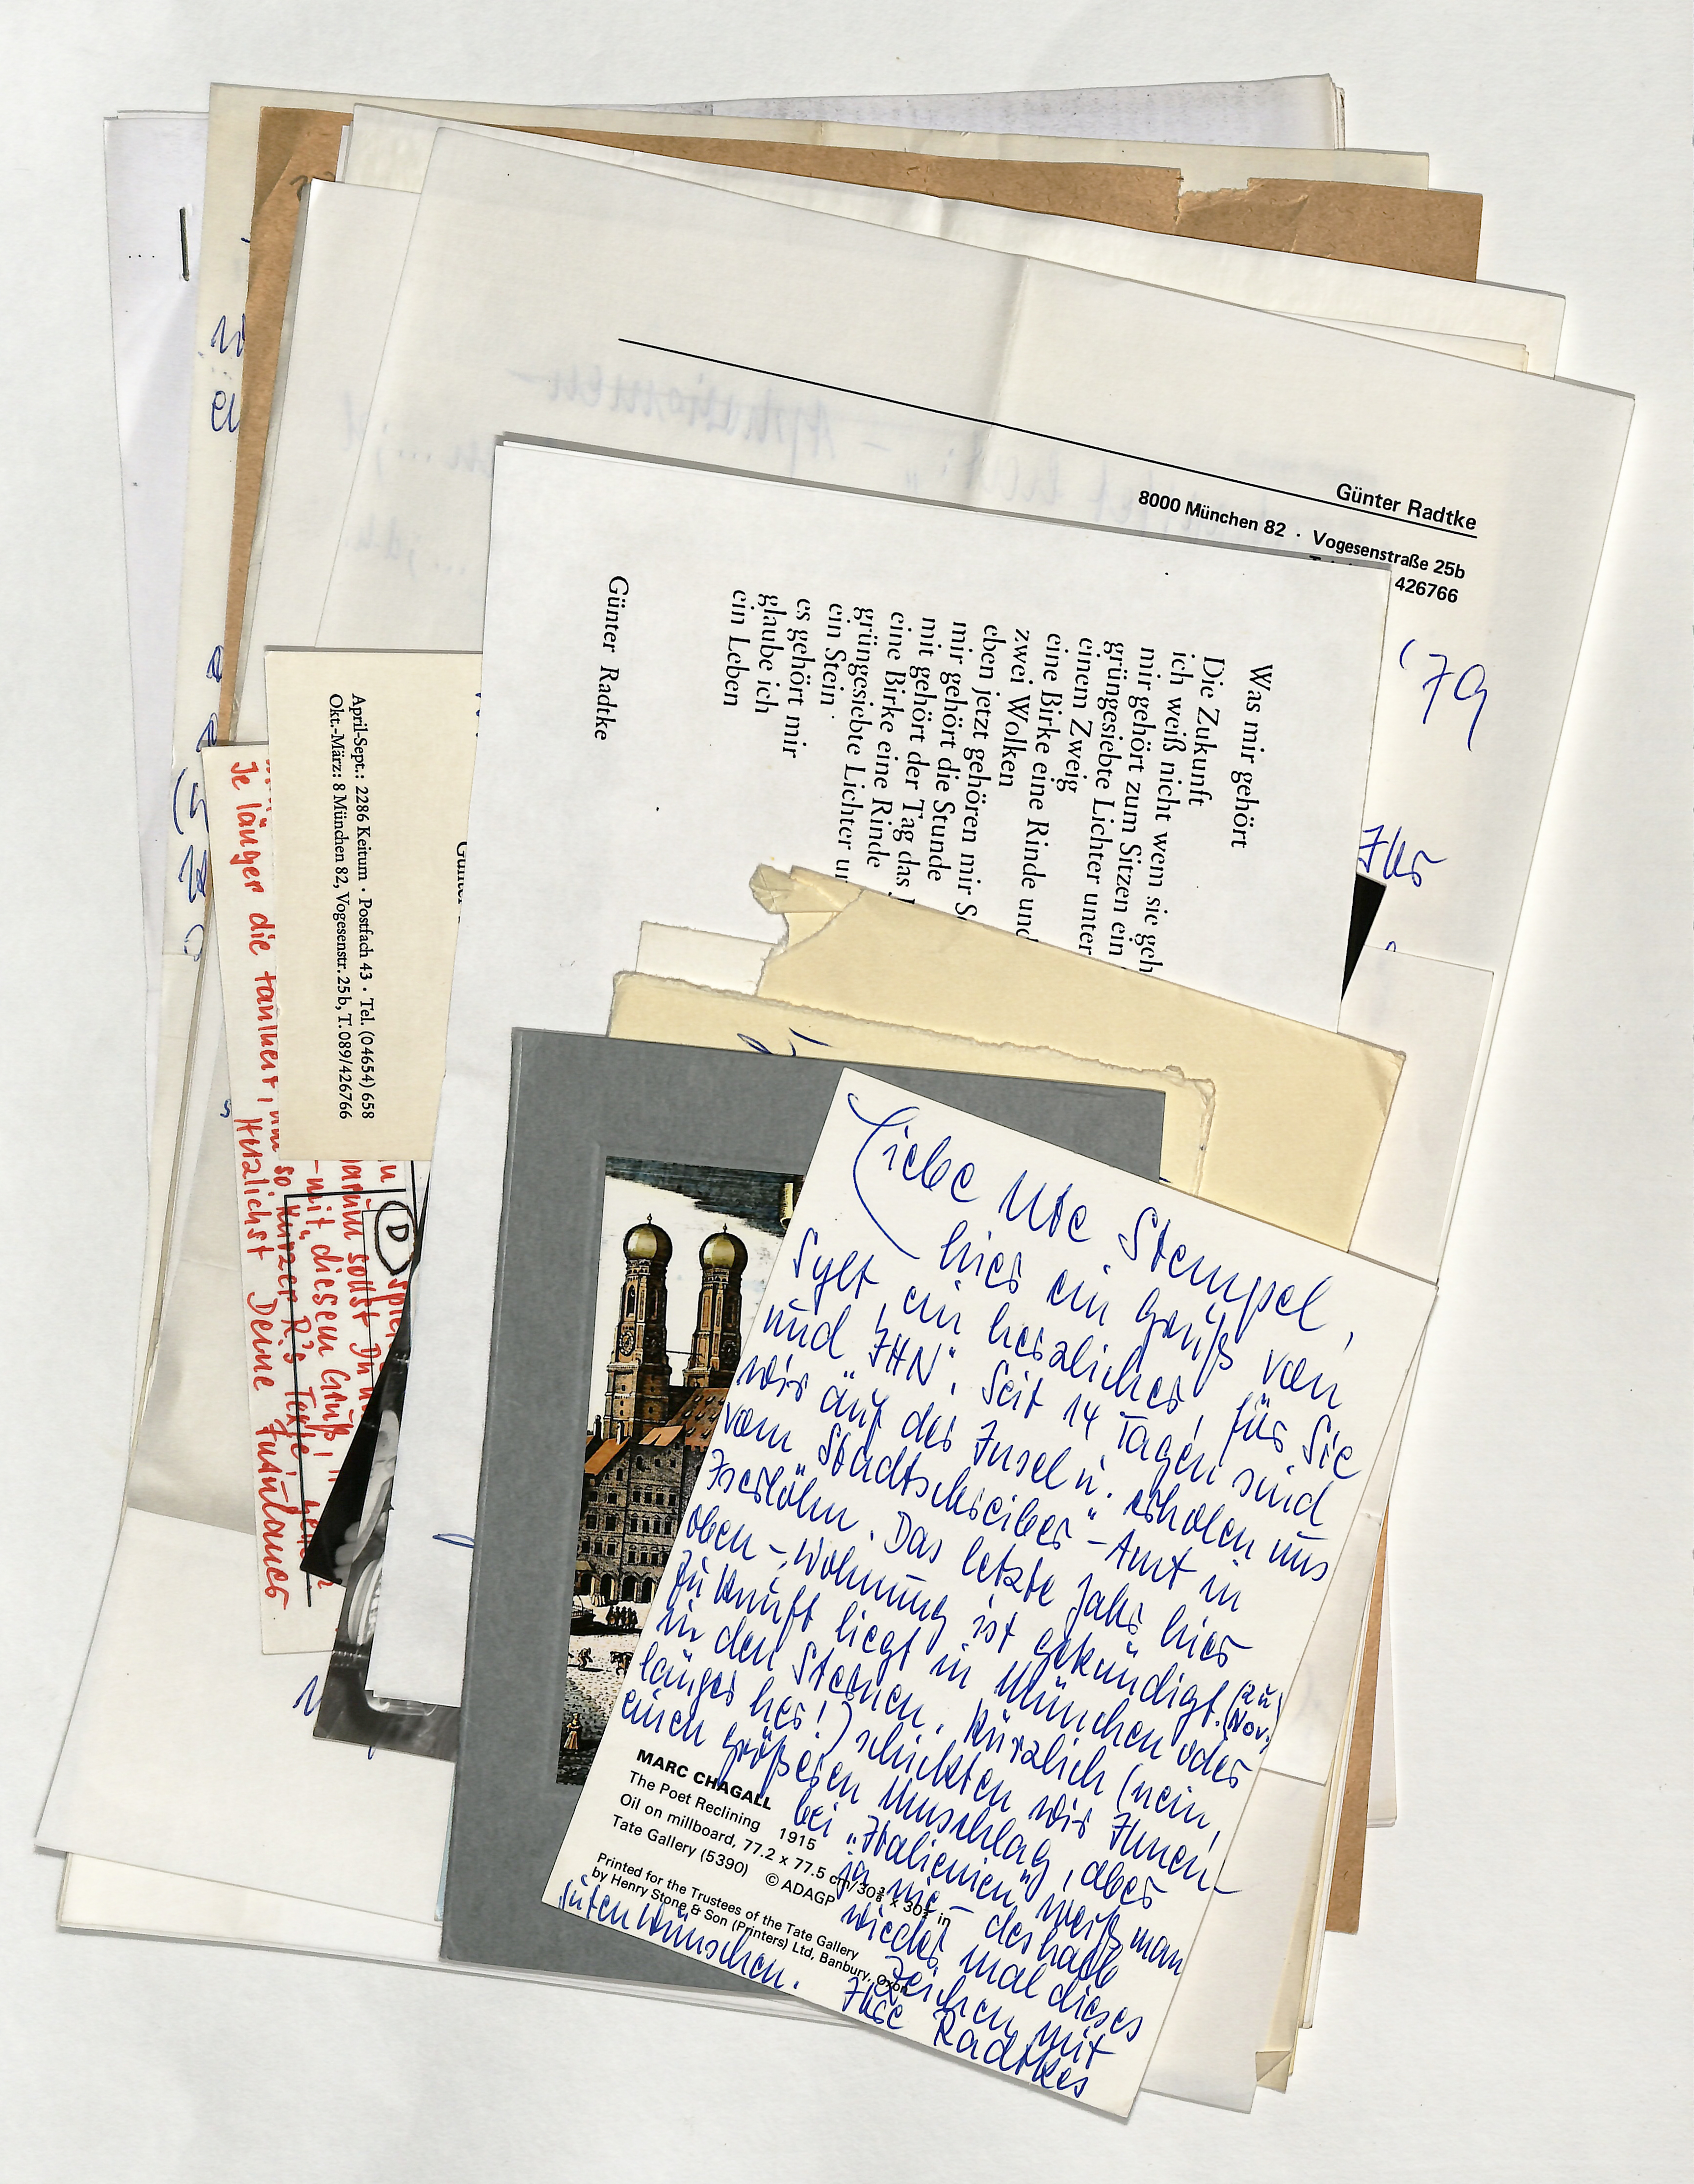 Günter Radtke
8000 München 82 · Vogesenstraße 25b
426766
'79
Ihr
Was mir gehört
Die Zukunft
ich weiß nicht wem sie geh
mir gehört zum Sitzen ein
grüngesiebte Lichter unter
einem Zweig
eine Birke eine Rinde und
zwei Wolken
eben jetzt gehören mir S
mir gehört die Stunde
mit gehört der Tag das
eine Birke eine Rinde
grüngesiebte Lichter un
ein Stein
es gehört mir
glaube ich
ein Leben
Günter Radtke
April-Sept.: 2286 Keitum · Postfach 43 · Tel. (04654) 658
Okt.-März: 8 München 82, Vogesenstr. 25b, T. 089/426766
D
darum sollst Du
-mit diesem Gruß,
so kürzer R's Texte
Je länger die um
Herzlichst Deine
Liebe Ute Stempel,
hier ein Gruß von
Sylt, ein herzlicher, für Sie
und „IHN". Seit 14 Tagen sind
wir auf der Insel u. erholen uns
vom „Stadtschreiber"-Amt in
Iserlohn. Das letzte Jahr hier
oben -, Wohnung ist gekündigt. (zu Nov.)
Zukunft liegt in München oder
in den Sternen. Kürzlich (nein,
länger her!) schickten wir Ihnen
einen größeren Umschlag, aber
bei „Italienien" weiß man
ja nie - deshalb
wieder mal dieses
Zeichen mit
guten Wünschen.
Ihre Radtkes
MARC CHAGALL
The Poet Reclining 1915
Oil on millboard, 77.2 x 77.5 cm/30⅜ x 30½ in
Tate Gallery (5390) © ADAGP
Printed for the Trustees of the Tate Gallery
by Henry Stone & Son (Printers) Ltd, Banbury, Oxon